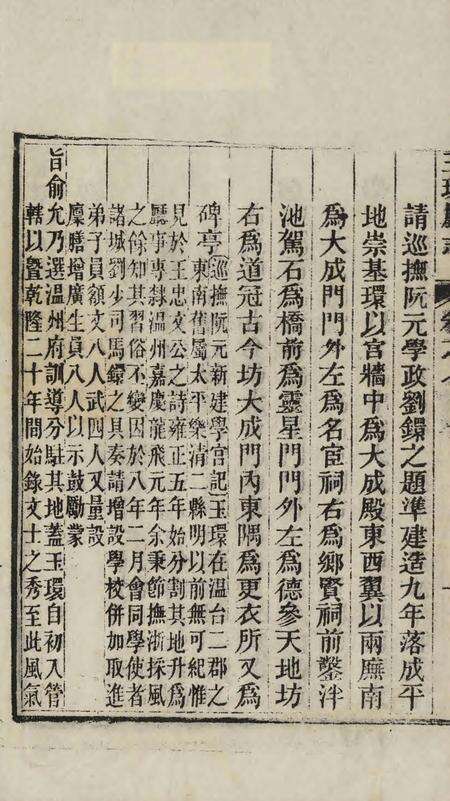 請巡撫阮元學政劉鐶之題準建造九年落成平
地崇基環以宮牆中為大成殿東西翼以兩廡南
為大成門門外左為名宦祠右為鄉賢祠前鑿泮
池駕石為橋前為靈星門門外左為德參天地坊
右為道冠古今坊大成門內東隅為更衣所又為
碑亭巡撫阮元新建學宮記玉環在溫台二郡之
東南舊屬太平樂清二縣明以前無可紀惟
見於王忠文公之詩雍正五年始分割其地升為
廳事專隸溫州嘉慶龍飛元年余秉節撫浙採風
之餘知其習俗不變因於八年二月會同學使者
諸城劉少司馬鐶之具奏請增設學校併加取進
弟子員額文八人武四人又量設
廩膳增廣生員八人以示鼓勵蒙
旨俞允乃選溫州府訓導分駐其地蓋玉環自初入管
轄以暨乾隆二十年間始錄文士之秀至此風氣